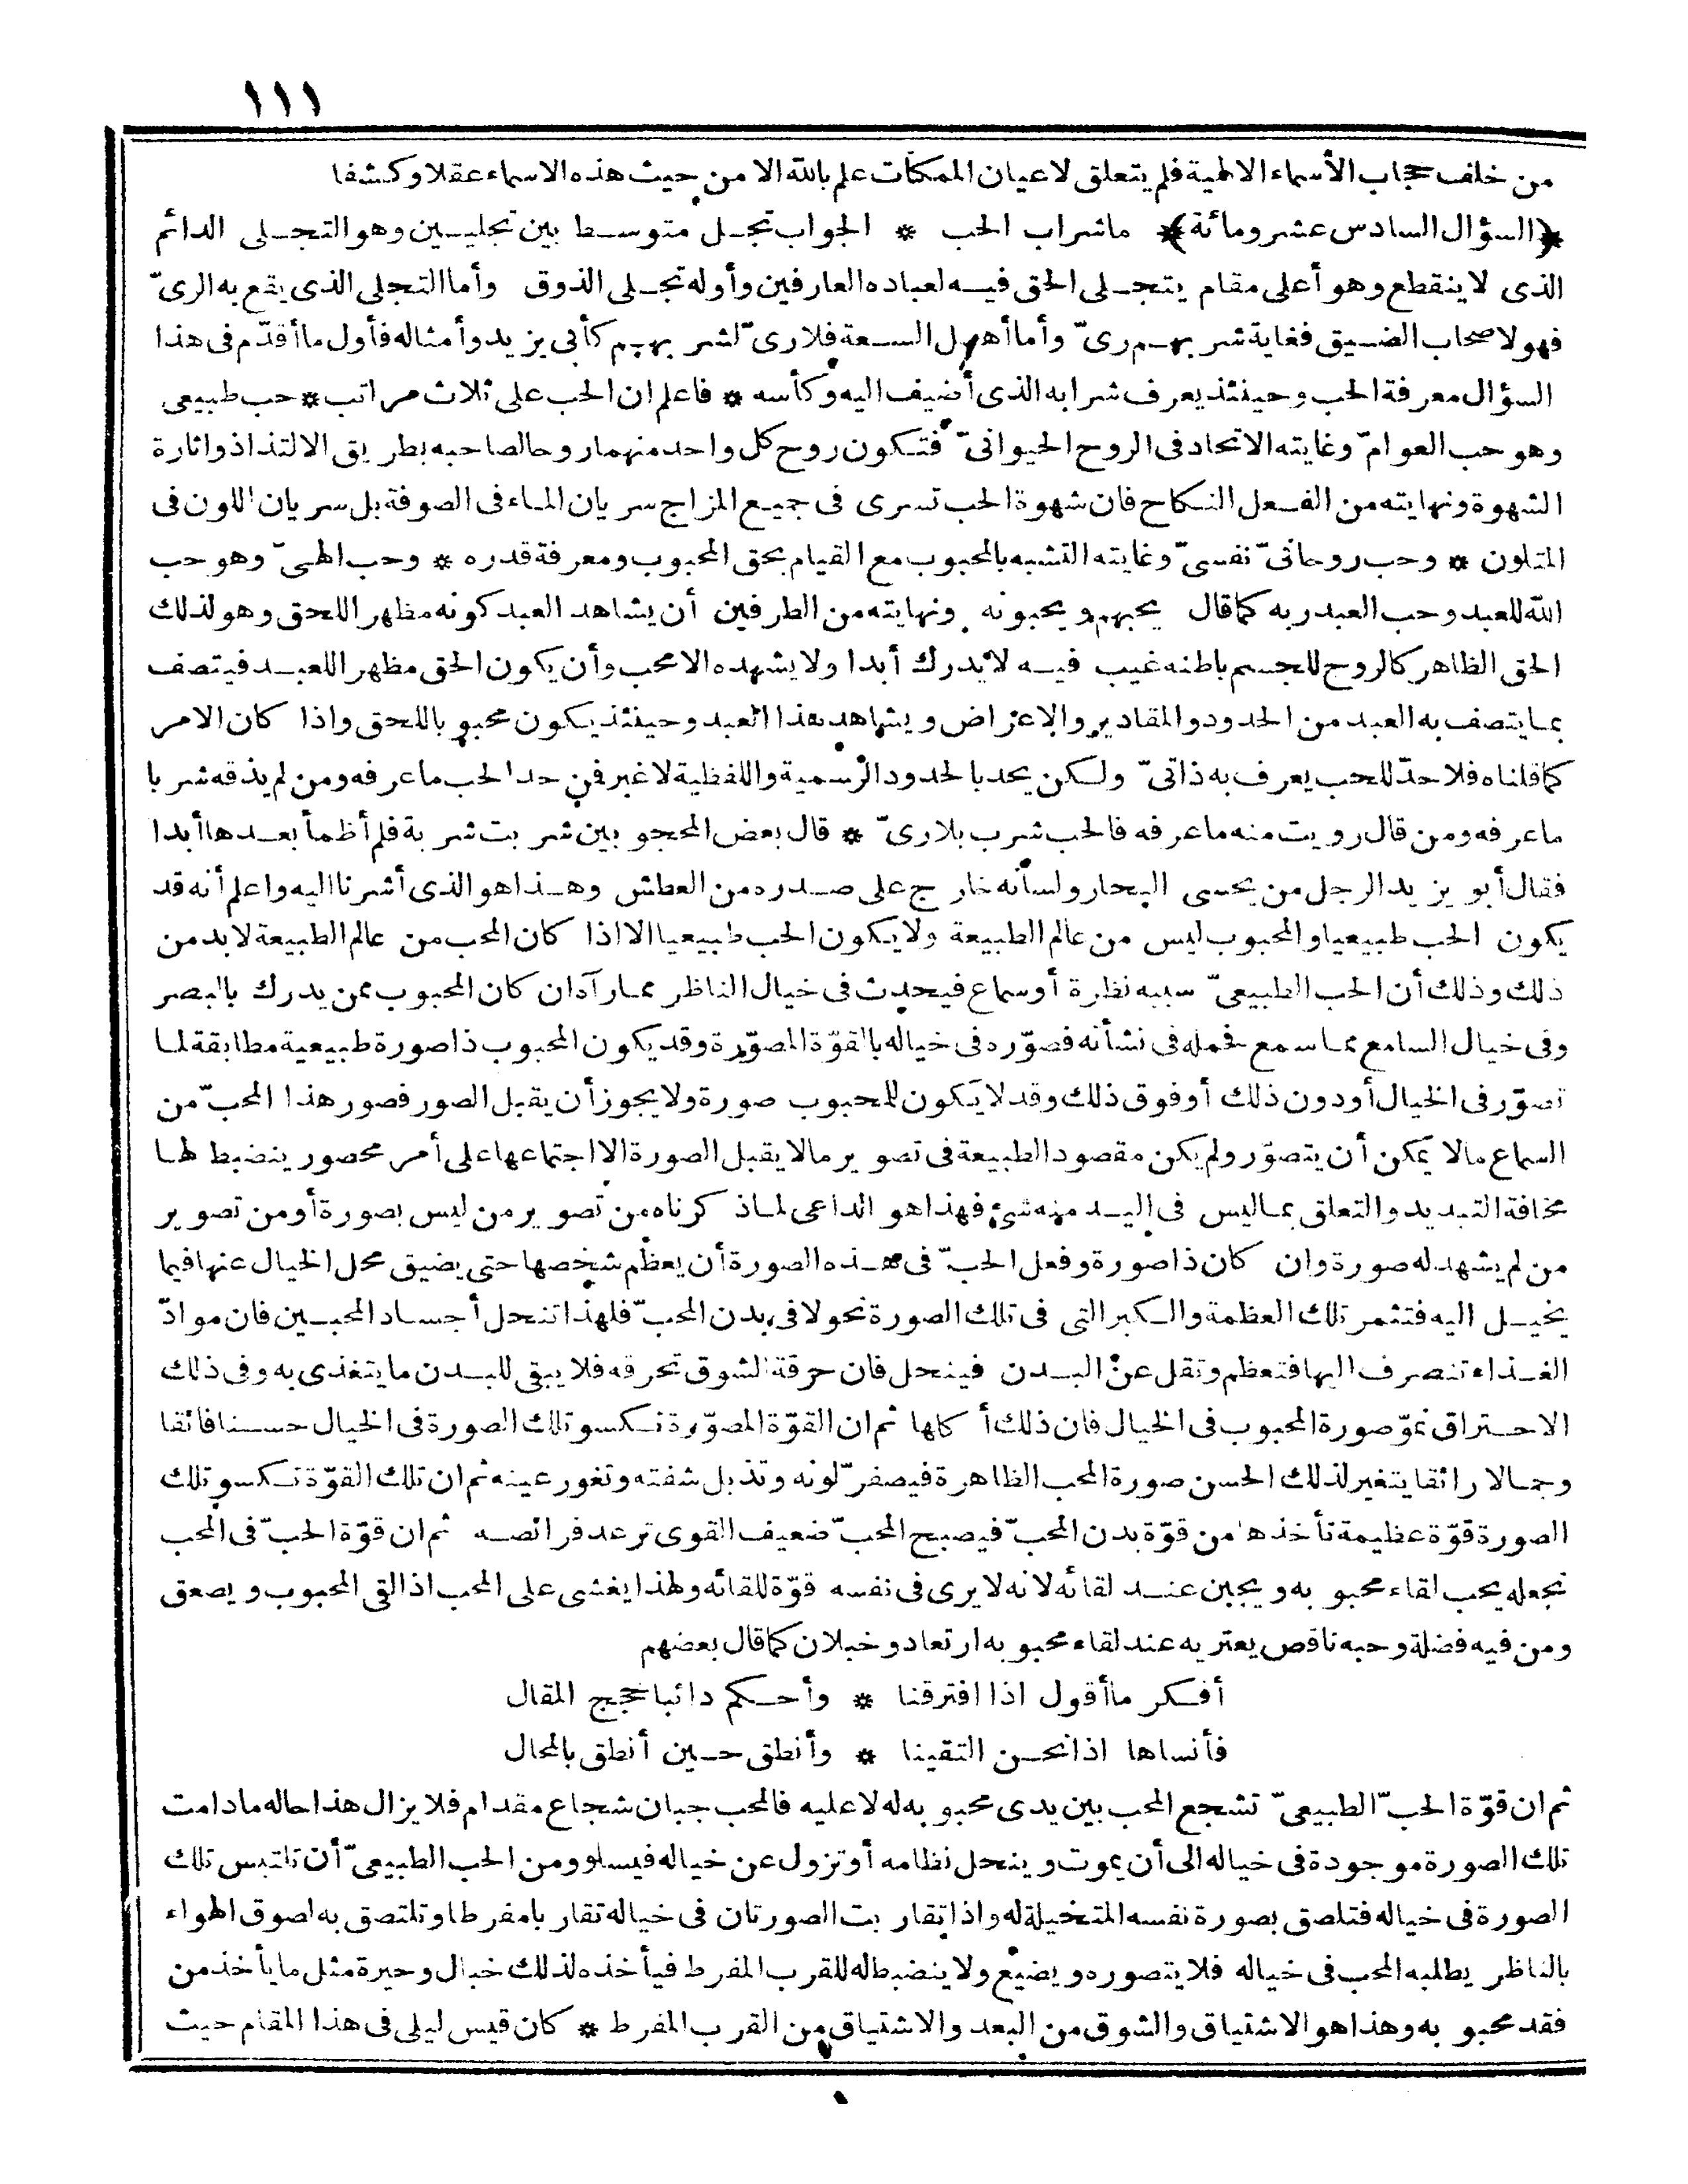 ١١١
من خلف حجاب الأسماء الالهية فلم يتعلق لاعيان الممكنات علم بالله الا من حيث هذه الاسماء عقلا وكشفا
﴿السؤال السادس عشر ومائة﴾ ما شراب الحب * الجواب تجل متوسط بين تجليين وهو التجلى الدائم
الذى لا ينقطع وهو أعلى مقام يتجلى الحق فيه لعباده العارفين وأوله تجلى الذوق وأما التجلى الذى يقع به الرىّ
فهو لاصحاب الضيق فغاية شربهم رىّ وأما أهل السعة فلا رىّ لشربهم كأبى يزيد وأمثاله فأول ما أقدّم فى هذا
السؤال معرفة الحب وحينئذ يعرف شرابه الذى أضيف اليه وكأسه * فاعلم ان الحب على ثلاث مراتب * حب طبيعى
وهو حب العوامّ وغايته الاتحاد فى الروح الحيوانىّ فتكون روح كل واحد منهما روحا لصاحبه بطريق الالتذاذ واثارة
الشهوة ونهايته من الفعل النكاح فان شهوة الحب تسرى فى جميع المزاج سريان الماء فى الصوفة بل سريان اللون فى
المتلون * وحب روحانىّ نفسىّ وغايته التشبه بالمحبوب مع القيام بحق المحبوب ومعرفة قدره * وحب الهىّ وهو حب
الله للعبد وحب العبد ربه كما قال يحبهم ويحبونه ونهايته من الطرفين أن يشاهد العبد كونه مظهرا للحق وهو لذلك
الحق الظاهر كالروح للجسم باطنه غيب فيه لا يدرك أبدا ولا يشهده الا محب وأن يكون الحق مظهرا للعبد فيتصف
بما يتصف به العبد من الحدود والمقادير والاعراض ويشاهد هذا العبد وحينئذ يكون محبوبا للحق واذا كان الامر
كما قلناه فلا حدّ للحب يعرف به ذاتىّ ولكن يحد بالحدود الرسمية واللفظية لا غير فمن حد الحب ما عرفه ومن لم يذقه شربا
ما عرفه ومن قال رويت منه ما عرفه فالحب شرب بلا رىّ * قال بعض المحجوبين شربت شربة فلم أظمأ بعدها أبدا
فقال أبو يزيد الرجل من يحسى البحار ولسانه خارج على صدره من العطش وهذا هو الذى أشرنا اليه واعلم أنه قد
يكون الحب طبيعيا والمحبوب ليس من عالم الطبيعة ولا يكون الحب طبيعيا الا اذا كان المحب من عالم الطبيعة لا بد من
ذلك وذلك أن الحب الطبيعىّ سببه نظرة أو سماع فيحدث فى خيال الناظر مما رآه ان كان المحبوب ممن يدرك بالبصر
وفى خيال السامع مما سمع فحمله فى نشأته فصوّره فى خياله بالقوّة المصوّرة وقد يكون المحبوب ذا صورة طبيعية مطابقة لما
تصوّر فى الخيال أو دون ذلك أو فوق ذلك وقد لا يكون للمحبوب صورة ولا يجوز أن يقبل الصور فصور هذا المحبّ من
السماع ما لا يمكن أن يتصوّر ولم يكن مقصود الطبيعة فى تصوير ما لا يقبل الصورة الا اجتماعها على أمر محصور ينضبط لها
مخافة التبديد والتعلق بما ليس فى اليد منه شئ فهذا هو الداعى لما ذكرناه من تصوير من ليس بصورة أو من تصوير
من لم يشهد له صورة وان كان ذا صورة وفعل الحبّ فى هذه الصورة أن يعظم شخصها حتى يضيق محل الخيال عنها فيما
يخيل اليه فتثمر تلك العظمة والكبر التى فى تلك الصورة نحولا فى بدن المحبّ فلهذا تنحل أجساد المحبين فان موادّ
الغذاء تنصرف اليها فتعظم وتقل عن البدن فينحل فان حرقة الشوق تحرقه فلا يبقى للبدن ما يتغذى به وفى ذلك
الاحتراق نموّ صورة المحبوب فى الخيال فان ذلك أكلها ثم ان القوّة المصوّرة تكسو تلك الصورة فى الخيال حسنا فائقا
وجمالا رائقا يتغير لذلك الحسن صورة المحب الظاهرة فيصفرّ لونه وتذبل شفته وتغور عينه ثم ان تلك القوّة تكسو تلك
الصورة قوّة عظيمة تأخذها من قوّة بدن المحبّ فيصبح المحبّ ضعيف القوى ترعد فرائصه ثم ان قوّة الحبّ فى المحب
تجعله يحب لقاء محبوبه ويجبن عند لقائه لانه لا يرى فى نفسه قوّة للقائه ولهذا يغشى على المحب اذا لقى المحبوب ويصعق
ومن فيه فضلة وحبه ناقص يعتريه عند لقاء محبوبه ارتعاد وخبلان كما قال بعضهم
أفكر ما أقول اذا افترقنا * وأحكم دائبا حجج المقال
فأنساها اذا نحن التقينا * وأنطق حين أنطق بالمحال
ثم ان قوّة الحبّ الطبيعىّ تشجع المحب بين يدى محبوبه له لا عليه فالمحب جبان شجاع مقدام فلا يزال هذا حاله ما دامت
تلك الصورة موجودة فى خياله الى أن يموت وينحل نظامه أو تزول عن خياله فيسلو ومن الحب الطبيعىّ أن تلتبس تلك
الصورة فى خياله فتلصق بصورة نفسه المتخيلة له واذا تقاربت الصورتان فى خياله تقاربا مفرطا وتلتصق به لصوق الهواء
بالناظر يطلبه المحب فى خياله فلا يتصوره ويضيع ولا ينضبط له للقرب المفرط فيأخذه لذلك خبال وحيرة مثل ما يأخذ من
فقد محبوبه وهذا هو الاشتياق والشوق من البعد والاشتياق من القرب المفرط * كان قيس ليلى فى هذا المقام حيث